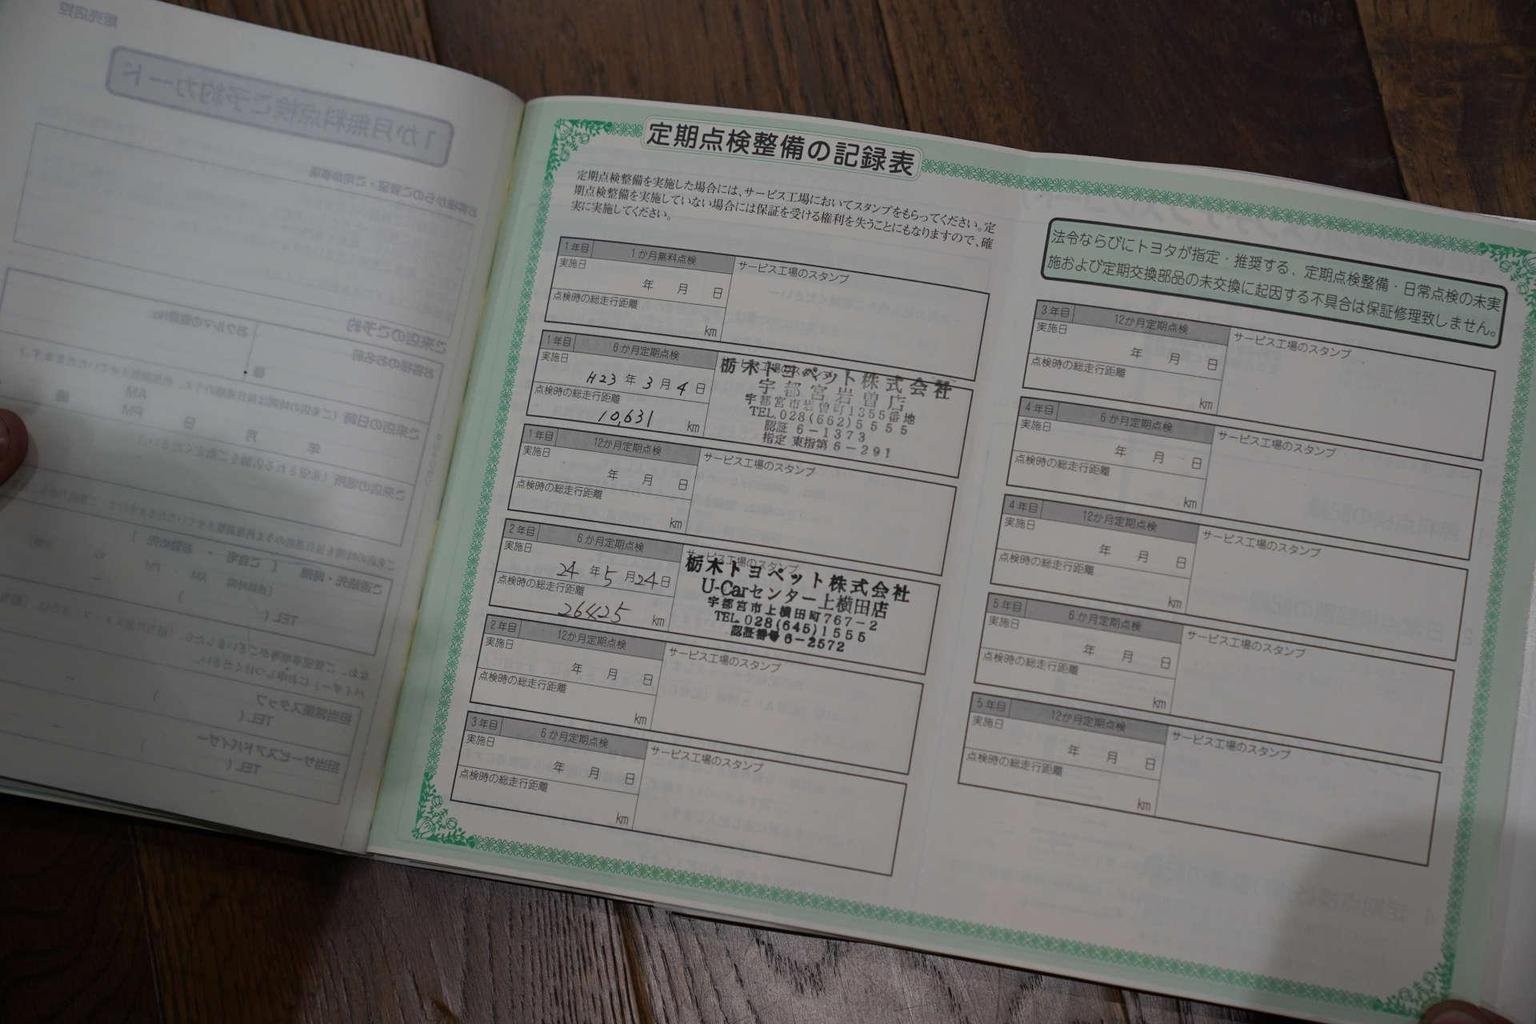 定期点検整備の記録表
定期点検整備を実施した場合には、サービス工場においてスタンプをもらってください。定
期点検整備を実施していない場合には保証を受ける権利を失うことにもなりますので、確
実に実施してください。
1年目 1か月無料点検 サービス工場のスタンプ
実施日
年 月 日
点検時の総走行距離
km
1年目 6か月定期点検 サービス工場のスタンプ
実施日
H23 年 3 月 4 日
点検時の総走行距離
10,631 km
栃木トヨペット株式会社
宇都宮岩曽店
宇都宮市岩曽町1355番地
TEL.028(662)5555
認証 6-1373
指定 東指第6-291
1年目 12か月定期点検 サービス工場のスタンプ
実施日
年 月 日
点検時の総走行距離
km
2年目 6か月定期点検 サービス工場のスタンプ
実施日
24 年 5 月 24 日
点検時の総走行距離
26425 km
栃木トヨペット株式会社
U-Carセンター上横田店
宇都宮市上横田町767-2
TEL.028(645)1555
認証番号 6-2572
2年目 12か月定期点検 サービス工場のスタンプ
実施日
年 月 日
点検時の総走行距離
km
3年目 6か月定期点検 サービス工場のスタンプ
実施日
年 月 日
点検時の総走行距離
km
法令ならびにトヨタが指定・推奨する、定期点検整備・日常点検の未実
施および定期交換部品の未交換に起因する不具合は保証修理致しません。
3年目 12か月定期点検 サービス工場のスタンプ
実施日
年 月 日
点検時の総走行距離
km
4年目 6か月定期点検 サービス工場のスタンプ
実施日
年 月 日
点検時の総走行距離
km
4年目 12か月定期点検 サービス工場のスタンプ
実施日
年 月 日
点検時の総走行距離
km
5年目 6か月定期点検 サービス工場のスタンプ
実施日
年 月 日
点検時の総走行距離
km
5年目 12か月定期点検 サービス工場のスタンプ
実施日
年 月 日
点検時の総走行距離
km